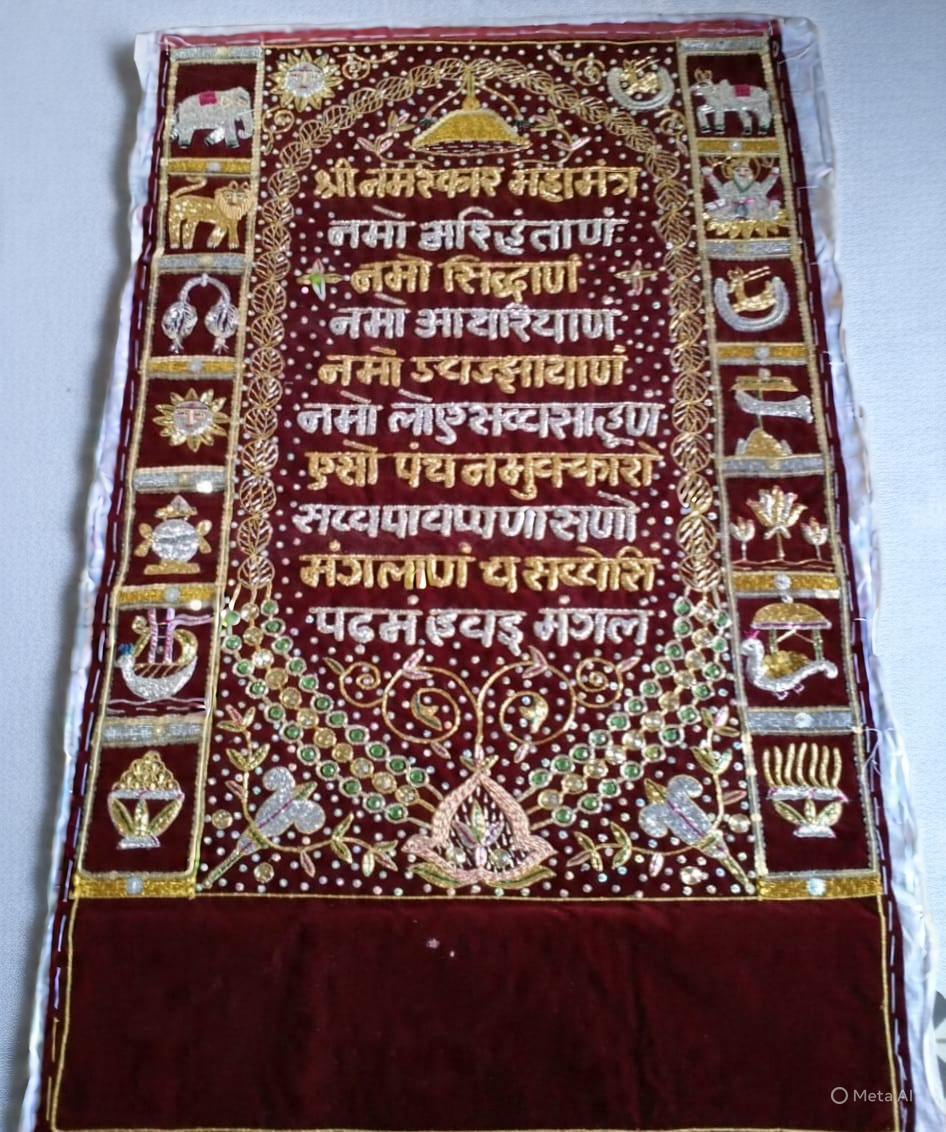 श्री नमस्कार महामंत्र
नमो अरिहंताणं
नमो सिद्धाणं
नमो आयरियाणं
नमो उवज्झायाणं
नमो लोए सव्वसाहूणं
एसो पंच नमुक्कारो
सव्वपावप्पणासणो
मंगलाणं च सव्वेसि
पढमं हवइ मंगल
Meta AI